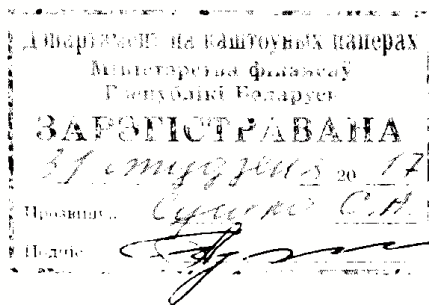 Дэпартамент па каштоўных паперах
Міністэрства фінансаў
Рэспублікі Беларусь
ЗАРЭГІСТРАВАНА
31 студзеня 20 17
Прозвішча
Подпіс